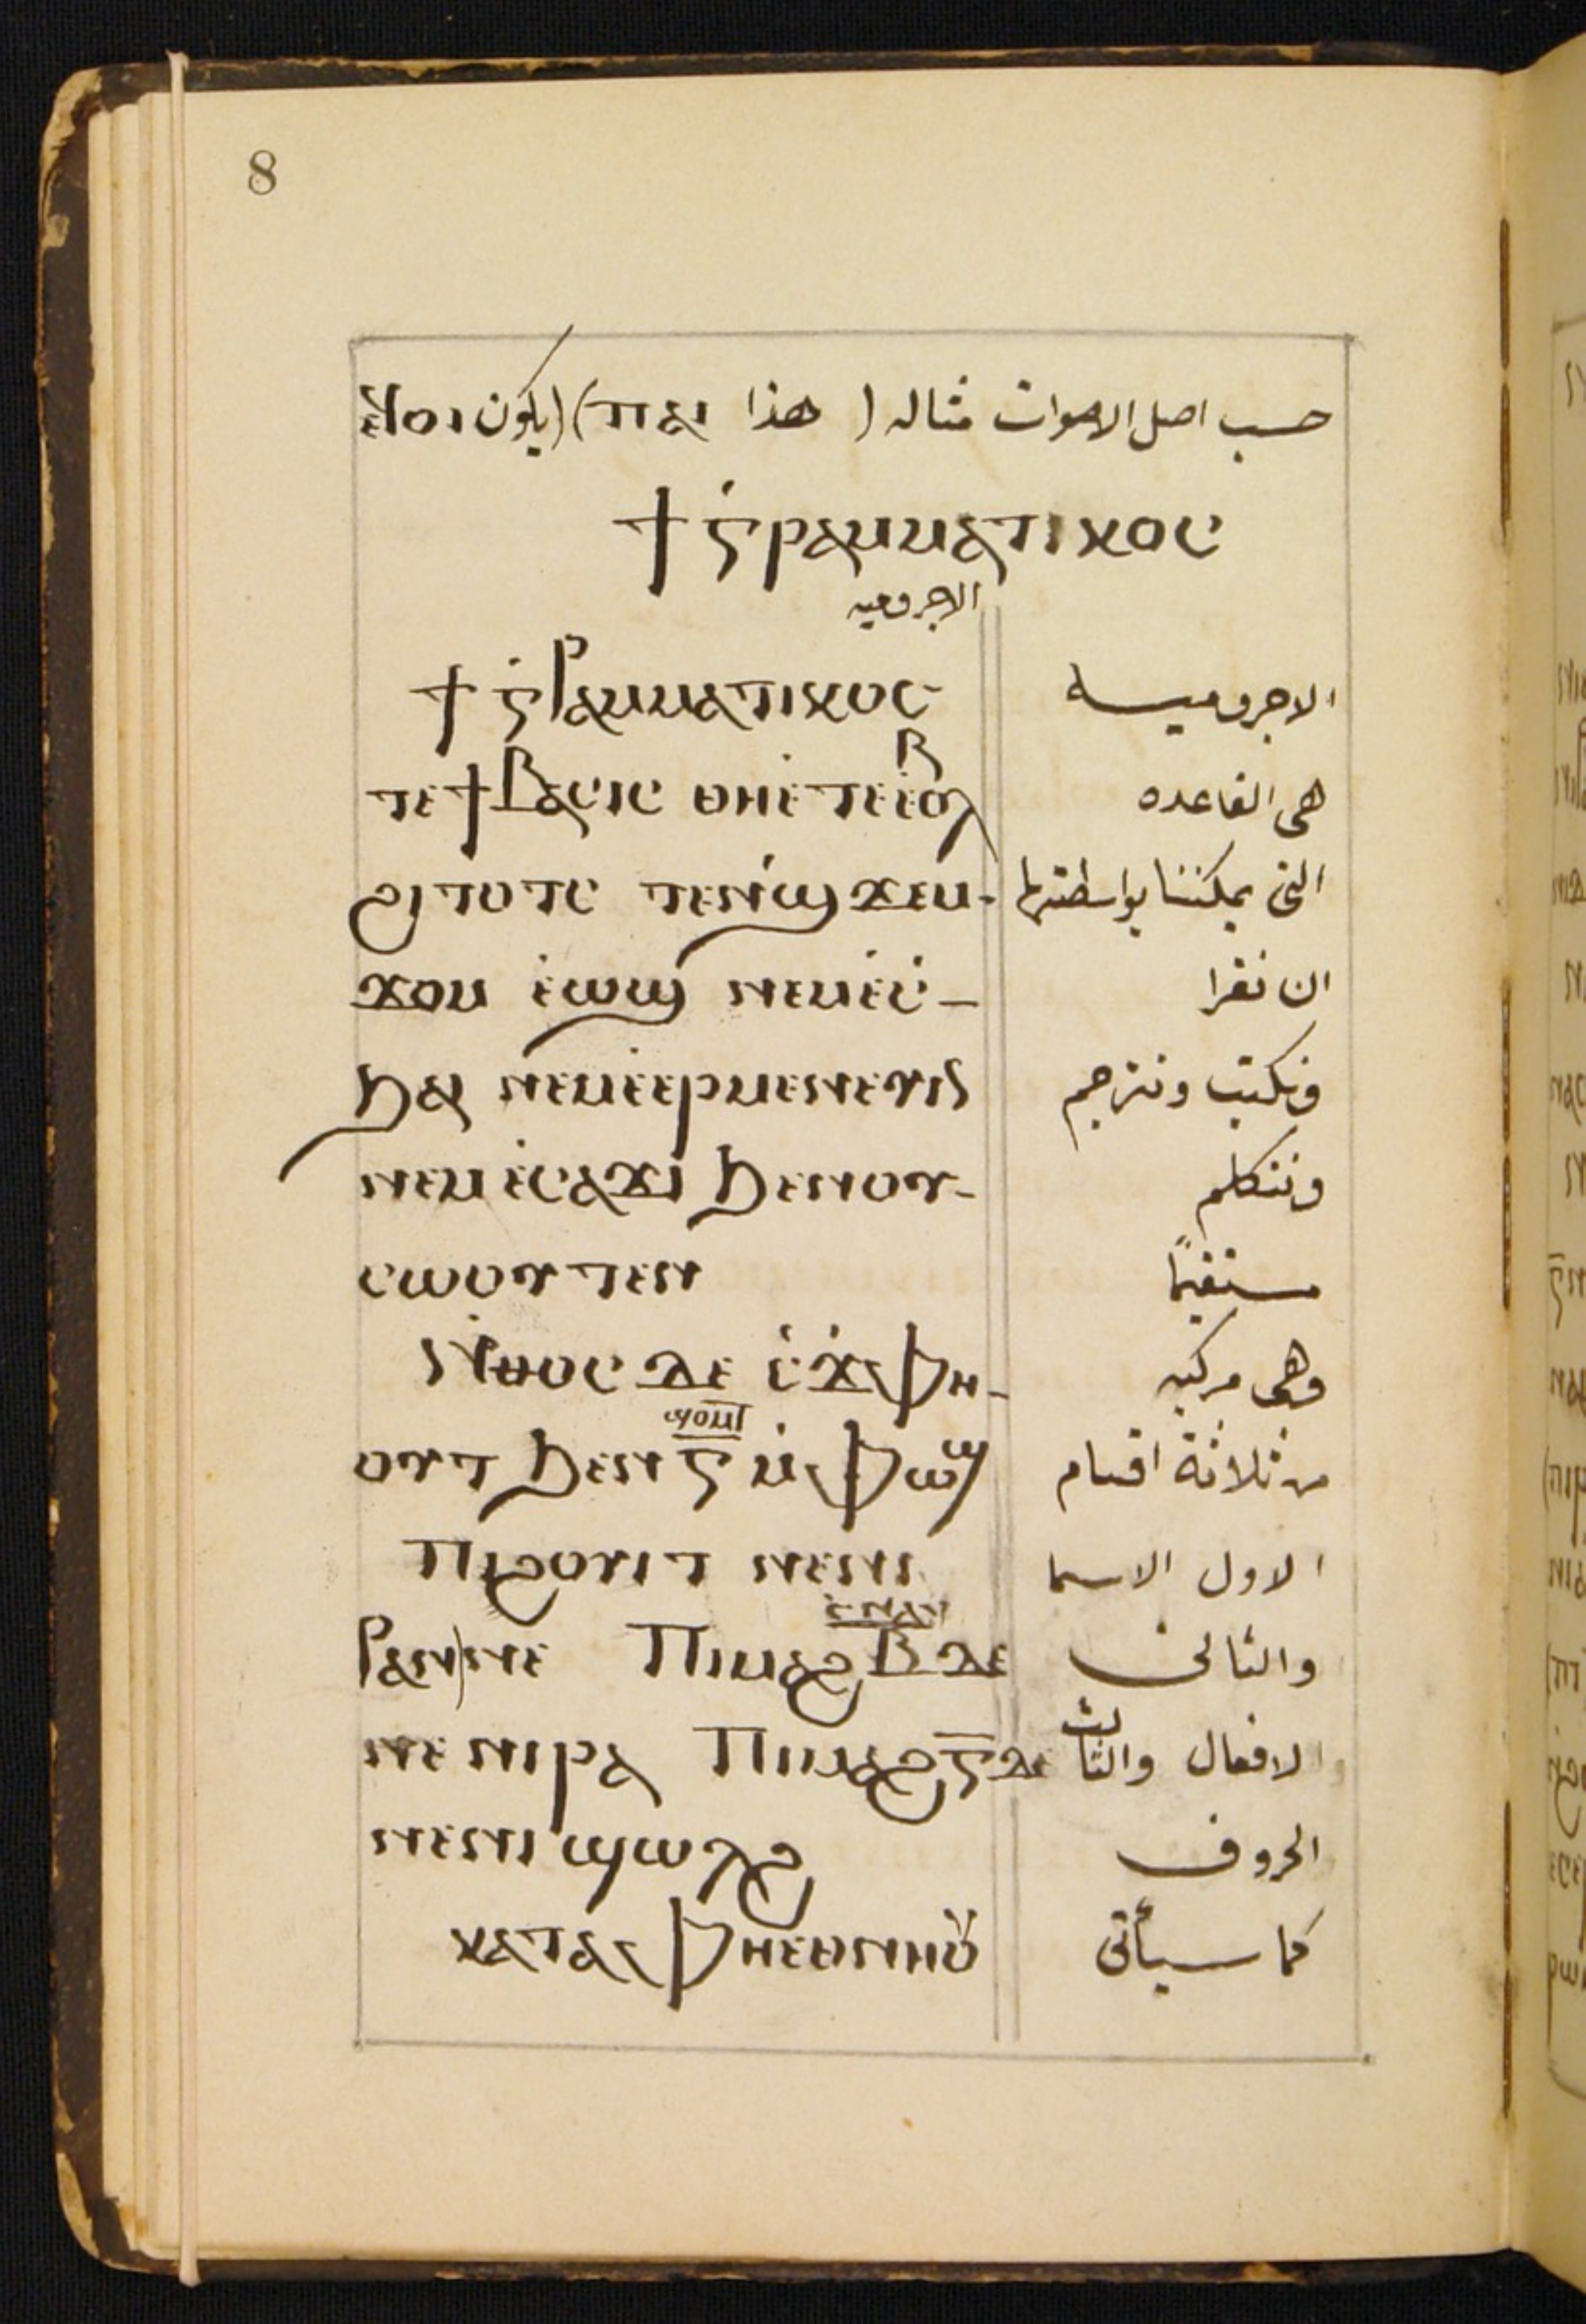 8
حسب اصل الاصوات مثاله ( هذا ⲡⲁⲓ) (يكون
ϯ ⲅ̇ⲣⲁⲙⲙⲁⲧⲓⲕⲟⲥ
الاجروميه
ϯ ⲅ̇ⲣⲁⲙⲙⲁⲧⲓⲕⲟⲥ الاجروميه
ⲧⲉ ϯ ⲃⲁⲥⲓⲥ ⲑⲏⲉ̇ⲧⲉ ⲉ̇ⲃⲟⲗ هى القاعده
ϩⲓⲧⲟⲧⲥ ⲧⲉⲛϣ̇ϫⲉⲙ- التى يمكننا بواسطتها
ϫⲟⲙ ⲉ̇ⲱϣ ⲛⲉⲙⲉ̇ⲥ̇- ان نقرا
ϧⲁⲓ ⲛⲉⲙⲉ̇ⲉⲣⲙⲉⲛⲉⲩⲓⲛ ونكتب ونترجم
ⲛⲉⲙⲉ̇ⲥⲁϫⲓ ϧⲉⲛⲟⲩ- ونتكلم
ⲥⲱⲟⲩⲧⲉⲛ مستقيمًا
ⲛ̇ⲑⲟⲥ ⲇⲉ ⲥ̇ϫ̇ⲫⲏ- وهى مركبه
ⲟⲩⲧ ϧⲉⲛ ⲅ̅ ⲙ̇ⲫⲱϣ من ثلاثة اقسام
ϣⲟⲙⲧ
ⲡⲓϩⲟⲩⲓⲧ ⲛⲉⲛⲓ الاول الاسما
ⲣⲁⲛ ⲛⲉ ⲡⲓⲙⲁϩⲃ̅ ⲇⲉ والثانى
ⲥⲛⲁⲩ
ⲛⲉ ⲛⲓⲣⲁ ⲡⲓⲙⲁϩⲅ̅ ⲇⲉ الافعال والثالث
ⲛⲉⲛⲓϣⲱⲗϩ الحروف
ⲕⲁⲧⲁ ⲫⲏⲉⲑⲛⲏⲟⲩ كما سيأتى